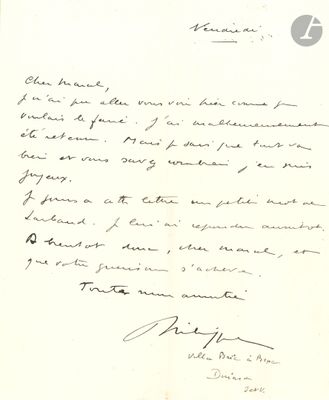 Vendredi
Cher Marcel,
Je n'ai pu aller vous voir hier comme je
voulais le faire. J'ai malheureusement
été retenu. Mais je sais que tout va
bien et vous savez combien j'en suis
joyeux.
Je joins à cette lettre un petit mot de
Larbaud. Je lui ai répondu aussitôt.
A bientôt donc, cher Marcel, et
que votre guérison s'achève.
Toute mon amitié
Philippe
Villa